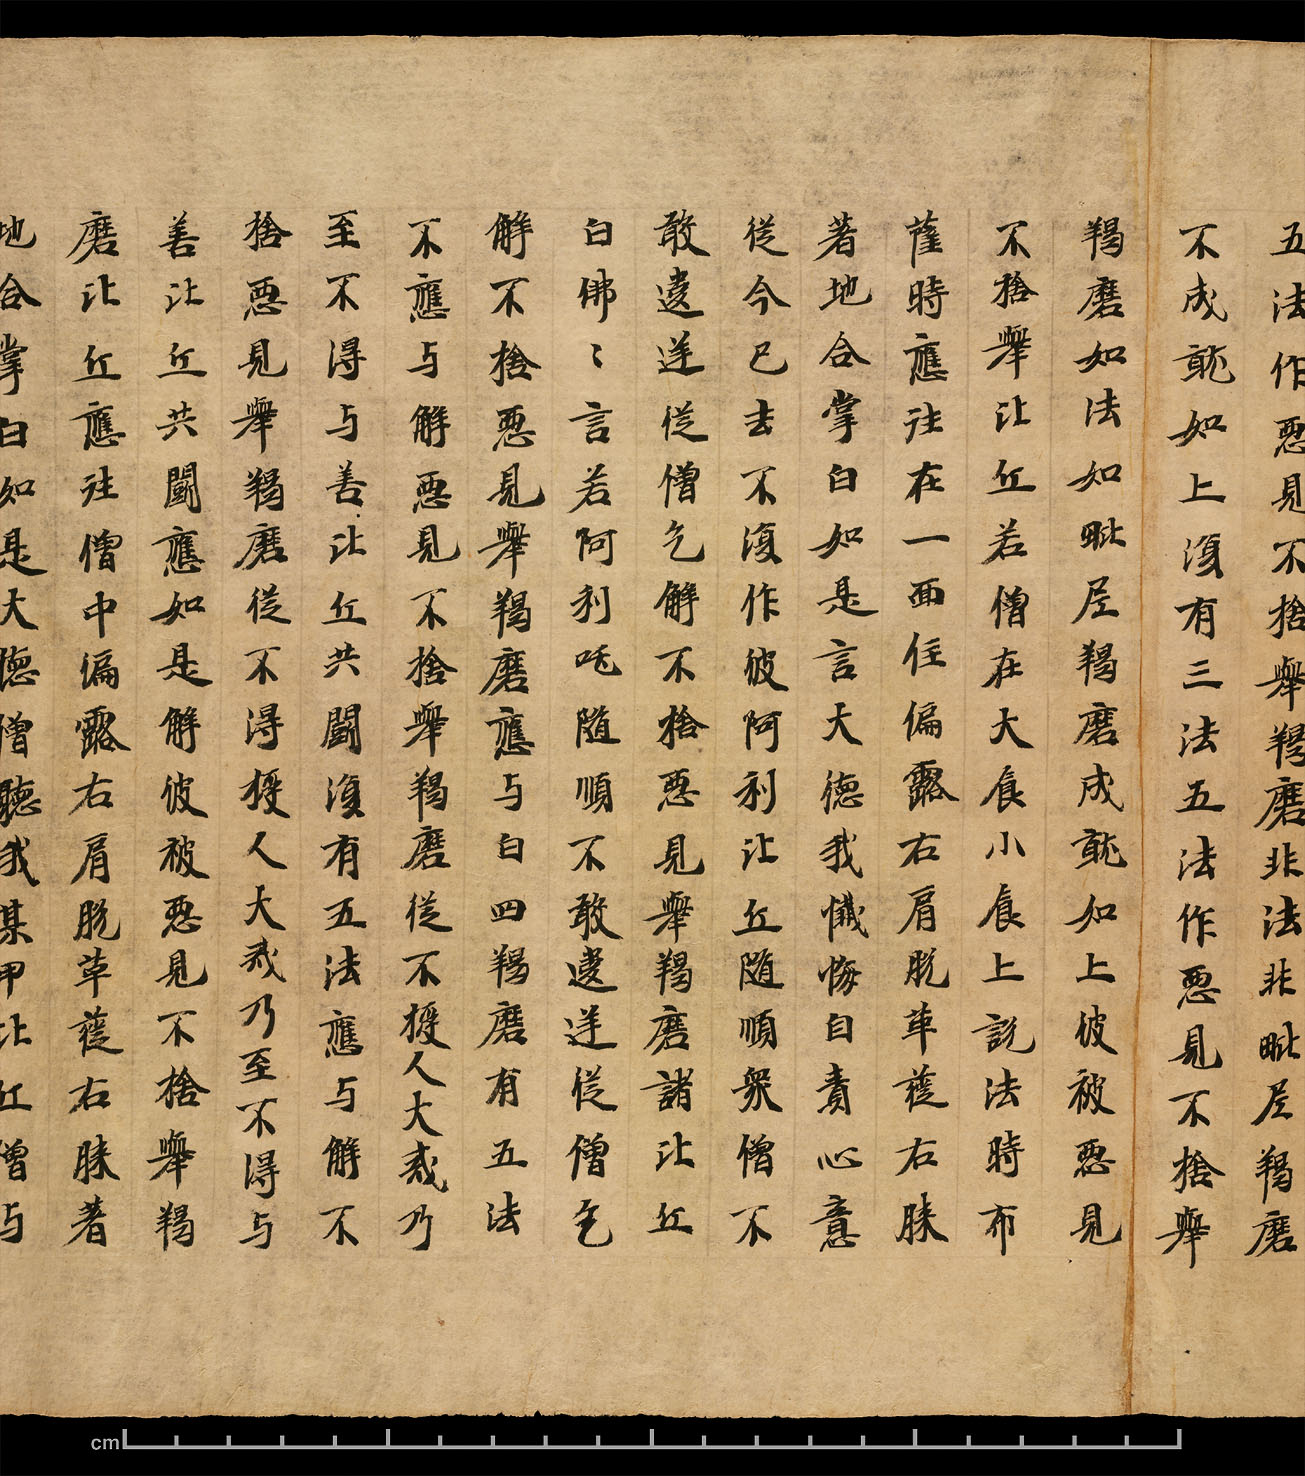 五法作惡見不捨舉羯磨非法非毗尼羯磨
不成就如上復有三法五法作惡見不捨舉
羯磨如法如毗尼羯磨成就如上彼被惡見
不捨舉比丘若僧在大食小食上說法時布
薩時應往在一面住偏露右肩脫革蓰右膝
著地合掌白如是言大德我懺悔自責心意
從今已去不復作彼阿利比丘隨順眾僧不
敢違逆從僧乞解不捨惡見舉羯磨諸比丘
白佛〻言若阿利吒隨順不敢違逆從僧乞
解不捨惡見舉羯磨應与白四羯磨有五法
不應与解惡見不捨舉羯磨從不授人大戒乃
至不得与善比丘共鬪復有五法應与解不
捨惡見舉羯磨從不得授人大戒乃至不得与
善比丘共鬪應如是解彼被惡見不捨舉羯
磨比丘應往僧中偏露右肩脫革蓰右膝著
地合掌白如是大德僧聽我某甲比丘僧与